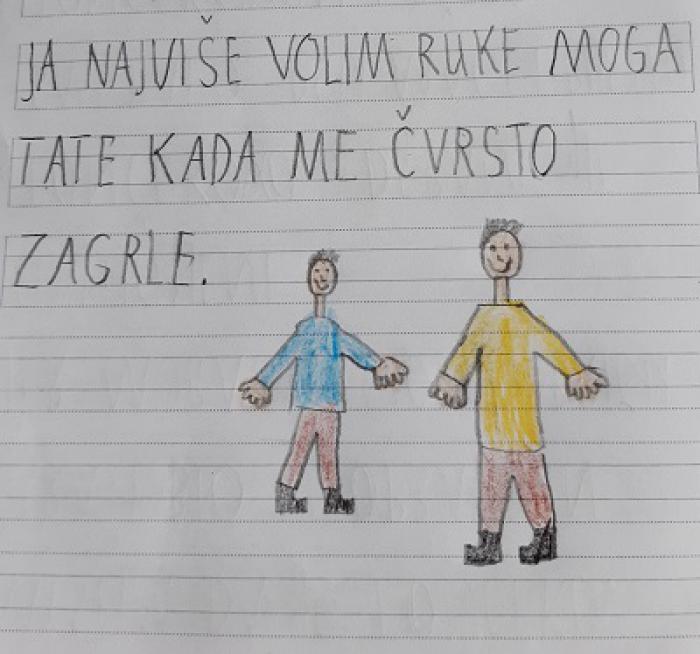 JA NAJVIŠE VOLIM RUKE MOGA
TATE KADA ME ČVRSTO
ZAGRLE.